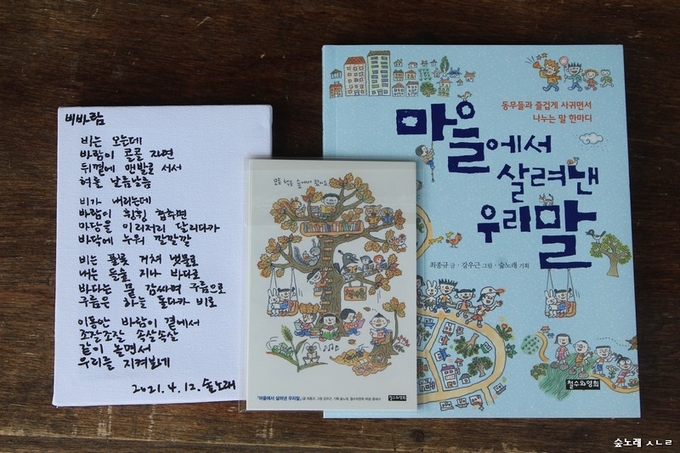 비바람
비는 오는데
바람이 콜콜 자면
뒤꼍에 맨발로 서서
혀를 날름날름
비가 내리는데
바람이 휭휭 춤추면
마당을 이리저리 달리다가
바닥에 누워 깔깔깔
비는 풀꽃 거쳐 냇물로
내는 들숲 지나 바다로
바다는 물 감싸며 구름으로
구름은 하늘 돌다가 비로
이동안 바람이 곁에서
조잘조잘 속살속살
같이 놀면서
우리를 지켜보네
2021.4.12. 숲노래
모든 책은 숲에서 왔어요
《마을에서 살려낸 우리말》
철수와영희
동무들과 즐겁게 사귀면서
나누는 말 한마디
마을에서
살려낸
우리말
최종규 글·강우근 그림·숲노래 기획
철수와영희
숲노래 ㅅㄴㄹ